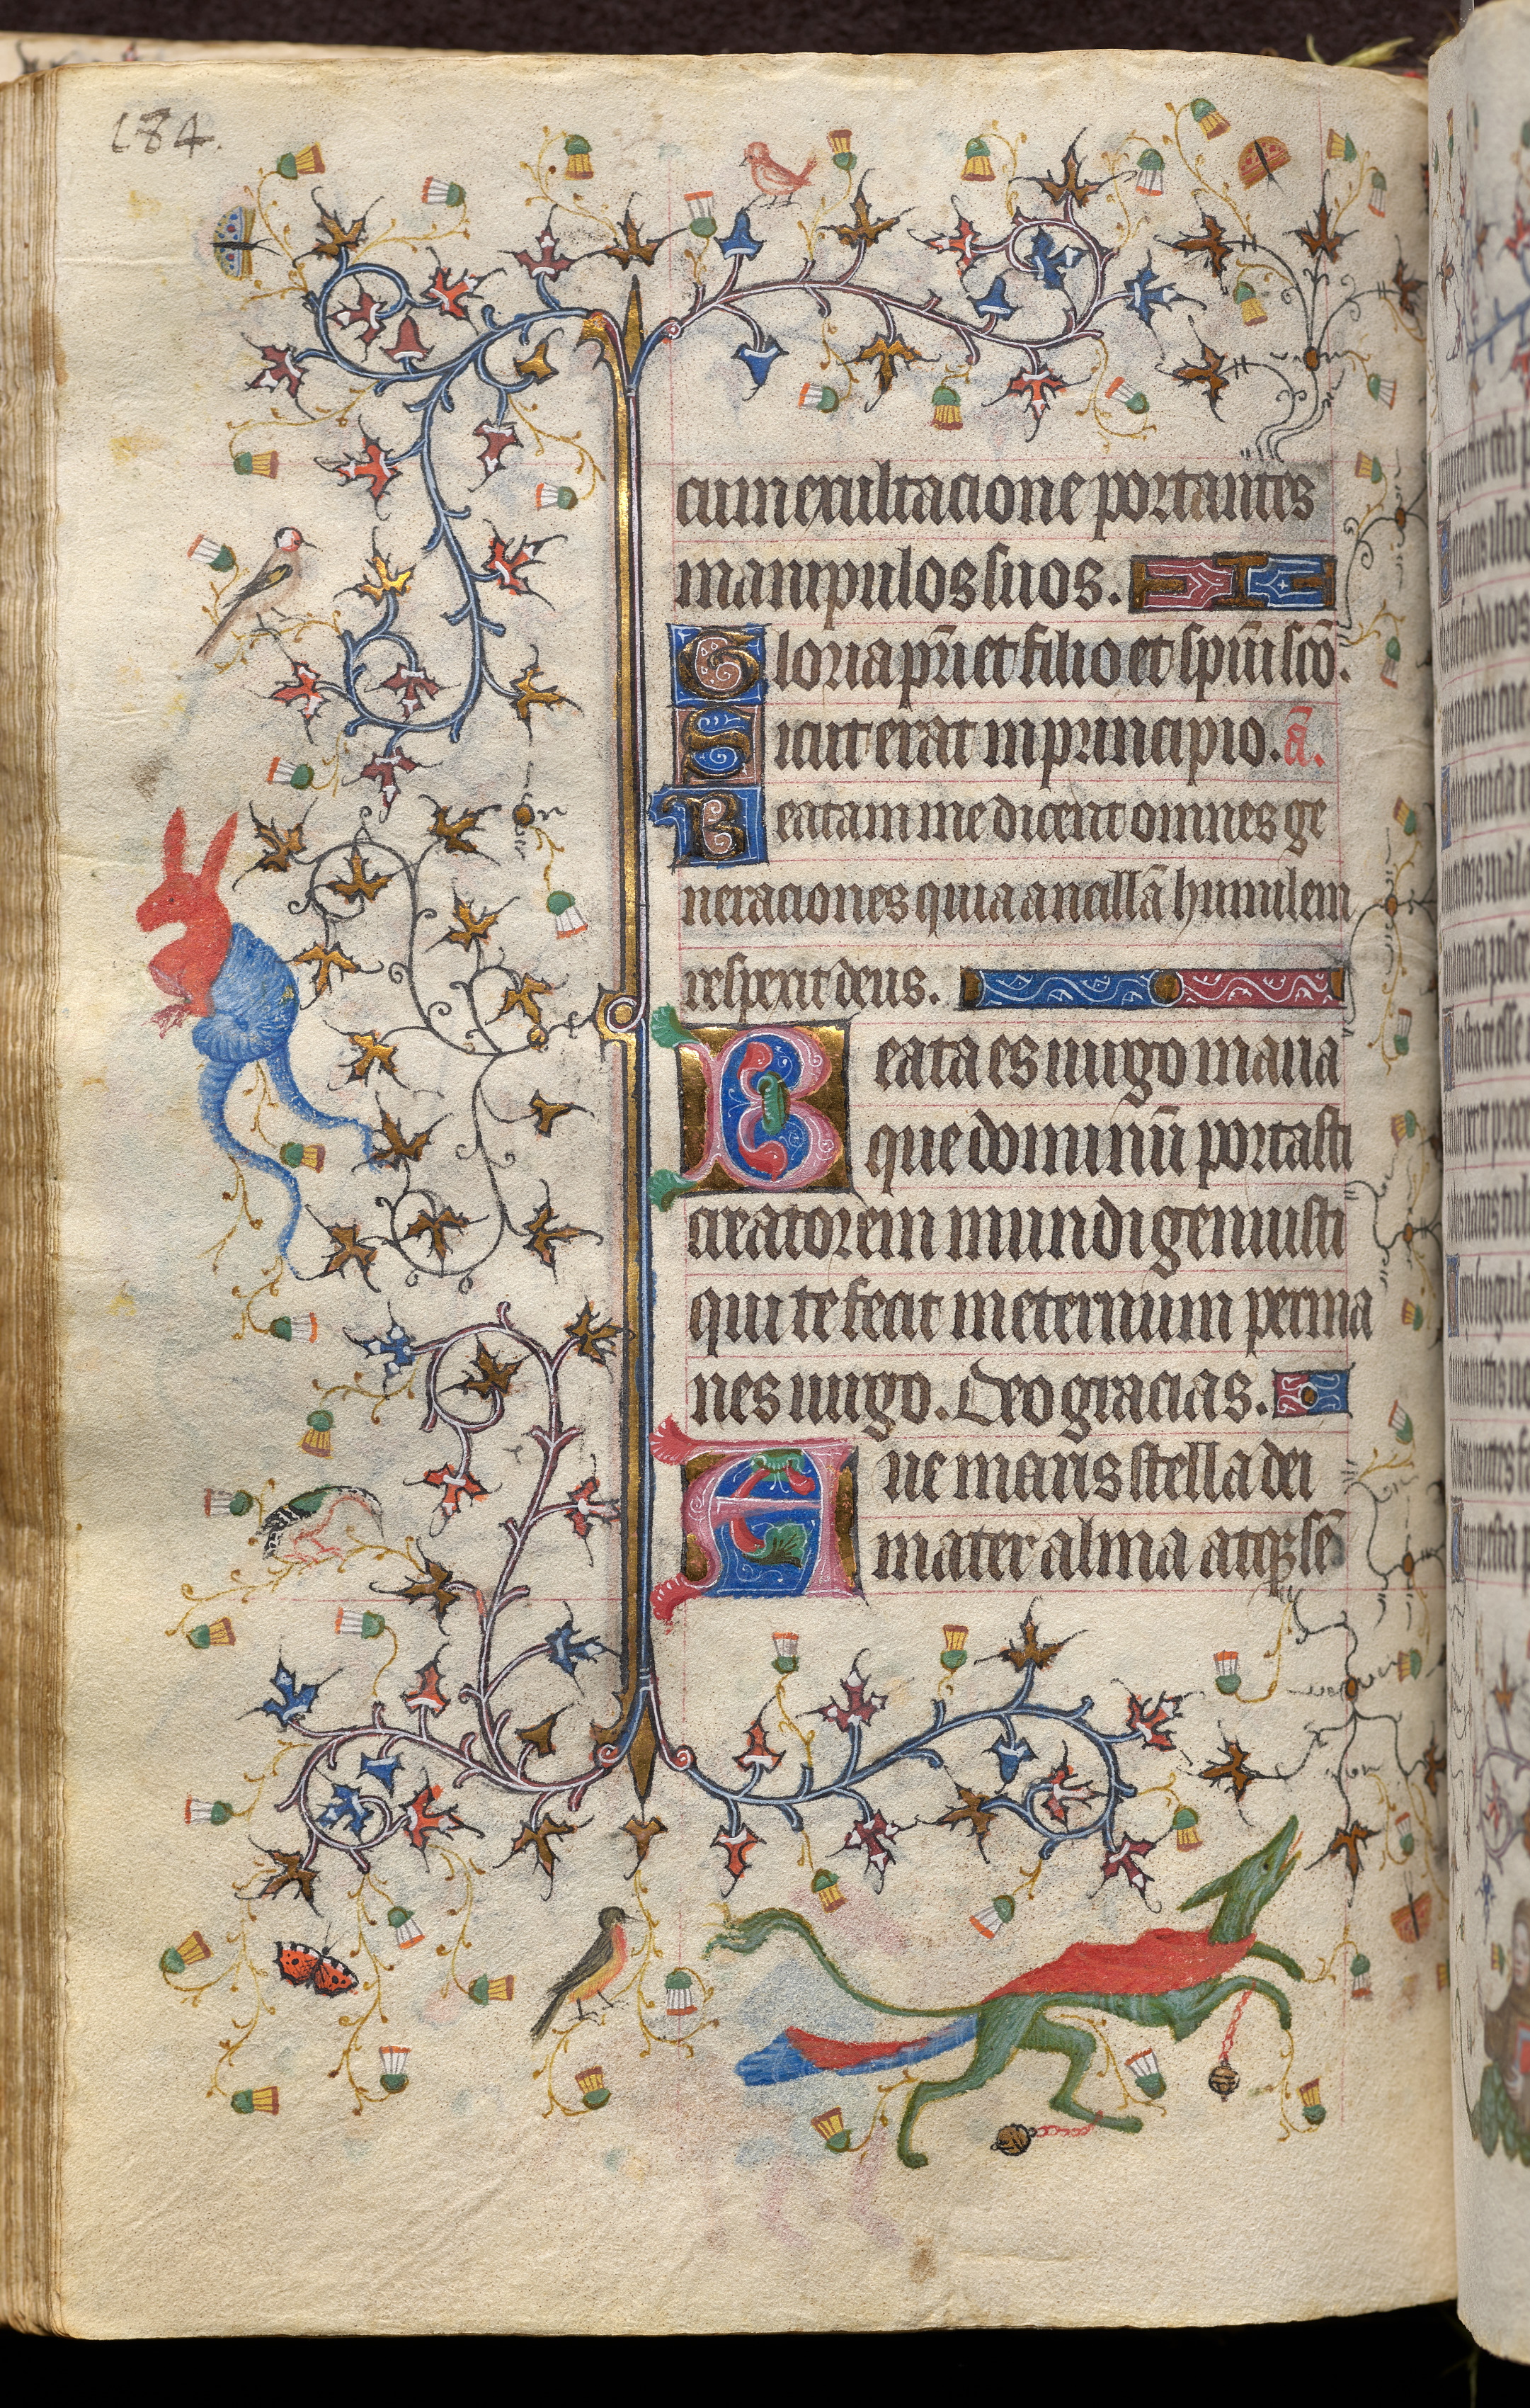 184.
cum exultacione portantes
manipulos suos.
Gloria pr̄i et filio et spūi scō.
Sicut erat in principio. ā.
Beatam me dicent omnes ge
neraciones quia ancillā humilem
respexit deus.
Beata es uirgo maria
que dominū portasti
creatorem mundi genuisti
qui te fecit in eternum perma
nes uirgo. Deo gracias.
Aue maris stella dei
mater alma atqꝫ sē